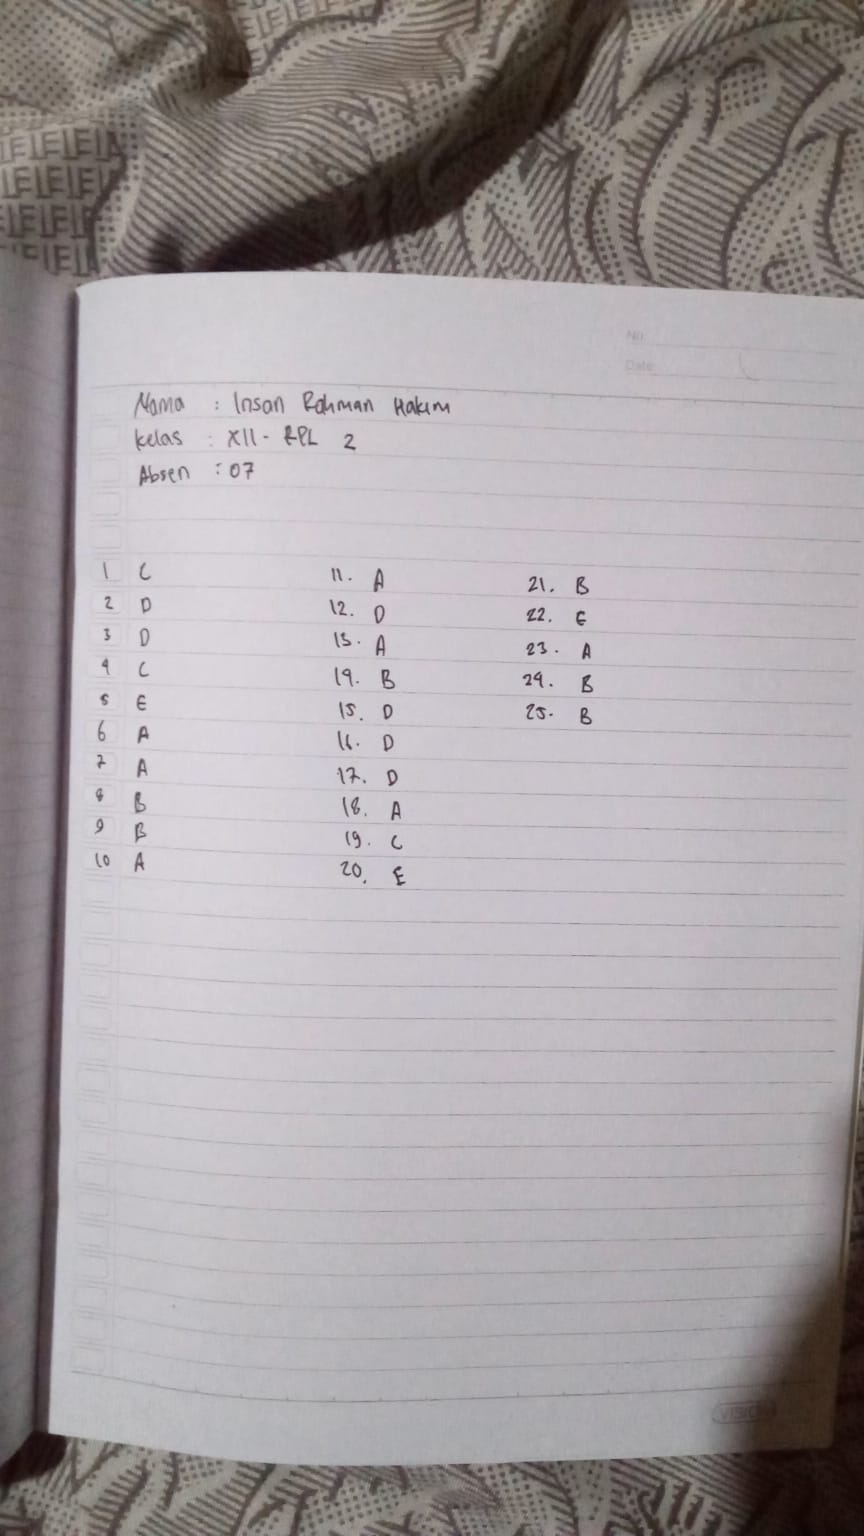 No.
Date
Nama : Insan Rahman Hakim
Kelas : XII - RPL 2
Absen : 07
1 C
2 D
3 D
4 C
5 E
6 A
7 A
8 B
9 B
10 A
11. A
12. D
13. A
14. B
15. D
16. D
17. D
18. A
19. C
20. E
21. B
22. E
23. A
24. B
25. B
VISION